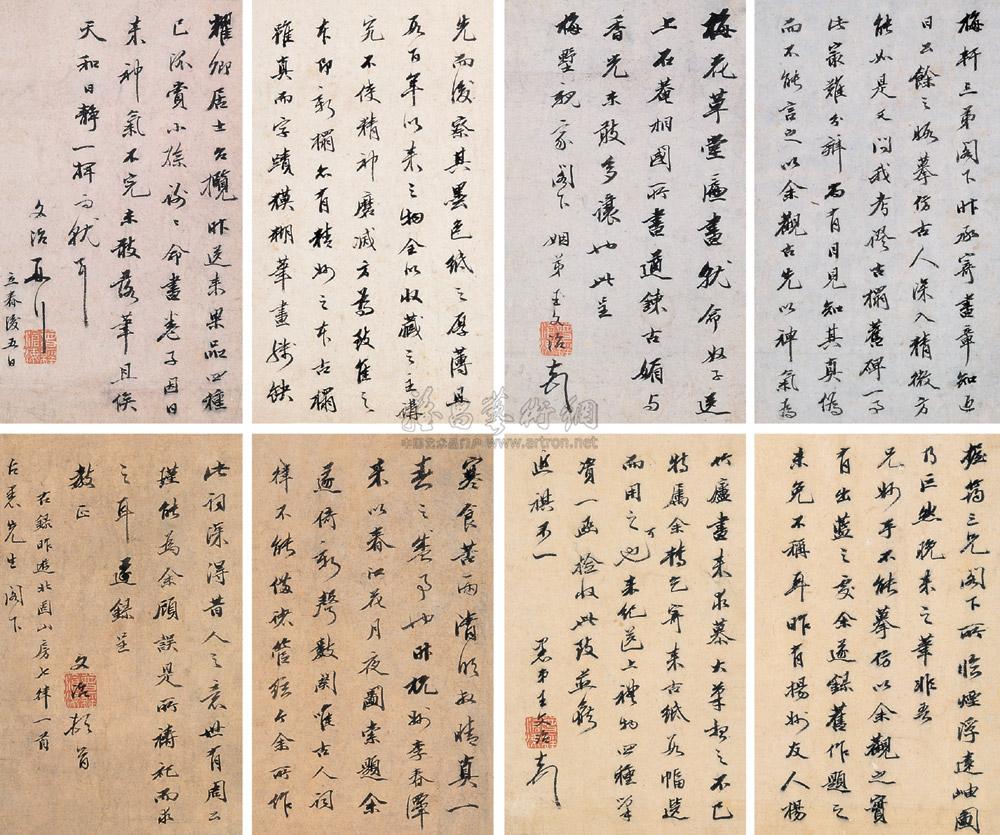 梅軒三弟閣下昨承寄畫章知近
日公餘之暇摹仿古人深入精微方
能如是又問我考證古搨舊碑一事
此最難分辯而有目見知其真偽
而不能言之以余觀古先以神氣為
先而後察其墨色紙之厚薄且
数百年以来之物全以收藏之主講
究不使精神磨滅方為致佳之
本即新搨亦有精妙之本古搨
雖真而字蹟模糊筆畫殘缺
梅花草堂匾書就命奴子送
上石菴相國所書遒鍊古媚与
香光未敢多讓也此呈
梅墅親家閣下
姻弟王文治
耀卿居士台攬昨送来果品四種
已添賞小孫謝謝命畫卷子因日
来神氣不完未敢落筆且俟
天和日靜一揮而就耳
文治再行
立春後五日
三兄閣下所臨煙浮遠岫圖
乃巨然晚来之筆非吾
兄妙手不能摹仿以余觀之實
有出藍之處余遂錄舊作題之
未免不稱耳昨有揚州友人楊
竹廬畫来求慕大筆想之不已
特属余轉乞寄来古紙数幅選
而用之可也来纪送上禮物四種筆
資一函捡收此致並候
近祺不一
愚弟王文治
寒食苦雨清明放晴真一
春之樂事也昨杭州李春潭
来以春江花月夜圖索題余
遂倚新聲数闋唯古人詞
祥不能儘被管絃今余所作
此詞深得昔人之意世有周公
瑾能為余顧誤是所禱祀而求
之耳遂錄呈
教正
文治頓首
右錄昨遊北固山房七律一首
先生閣下
雅昌藝術網
中国艺术品门户 www.artron.net